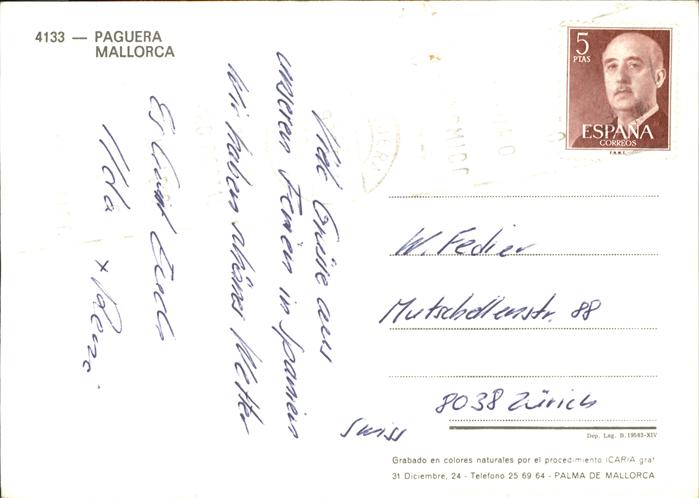 4133 — PAGUERA
MALLORCA
5
PTAS
ESPAÑA
CORREOS
F.N.M.T.
Viele Grüße aus
unseren Ferien in Spanien
Wir haben schönes Wetter
Es Grüsst Euch
+
W. Fedier
Mutschellenstr. 88
8038 Zürich
Swiss
Dep. Leg. B. 19583-XIV
Grabado en colores naturales por el procedimiento ICARIA graf
31 Diciembre, 24 - Teléfono 25 69 64 - PALMA DE MALLORCA